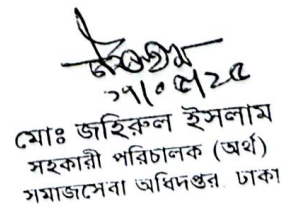 মোঃ জহিরুল ইসলাম
সহকারী পরিচালক (অর্থ)
সমাজসেবা অধিদপ্তর, ঢাকা